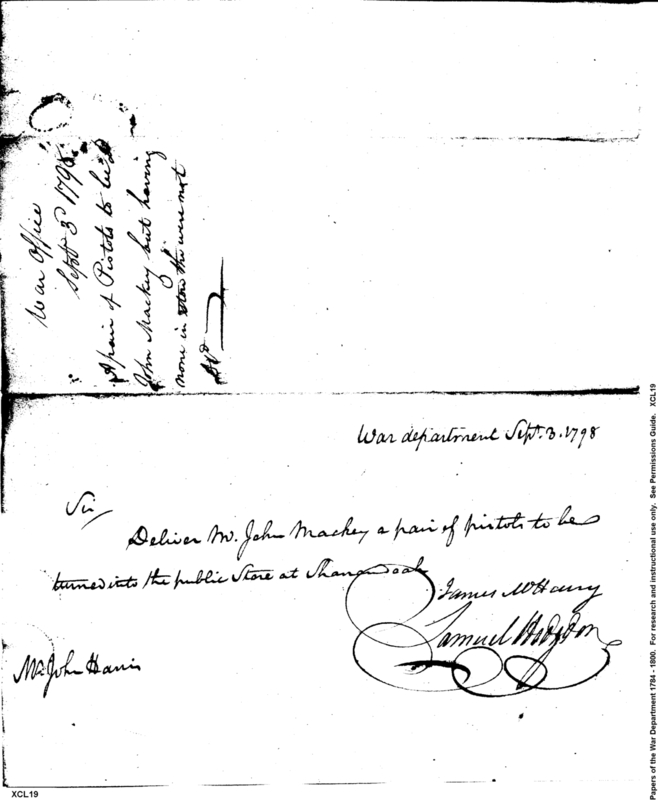 War Office
Sept 3d 1798
A pair of Pistols to be
John Mackey but having
none in Store the were not
War department Sept. 3. 1798
Sir
Deliver Mr. John Mackey a pair of pistols to be
turned into the public Store at Shanandoah
James McHenry
Samuel Hodgdon
Mr. John Harris
XCL19
Papers of the War Department 1784 - 1800. For research and instructional use only. See Permissions Guide. XCL19